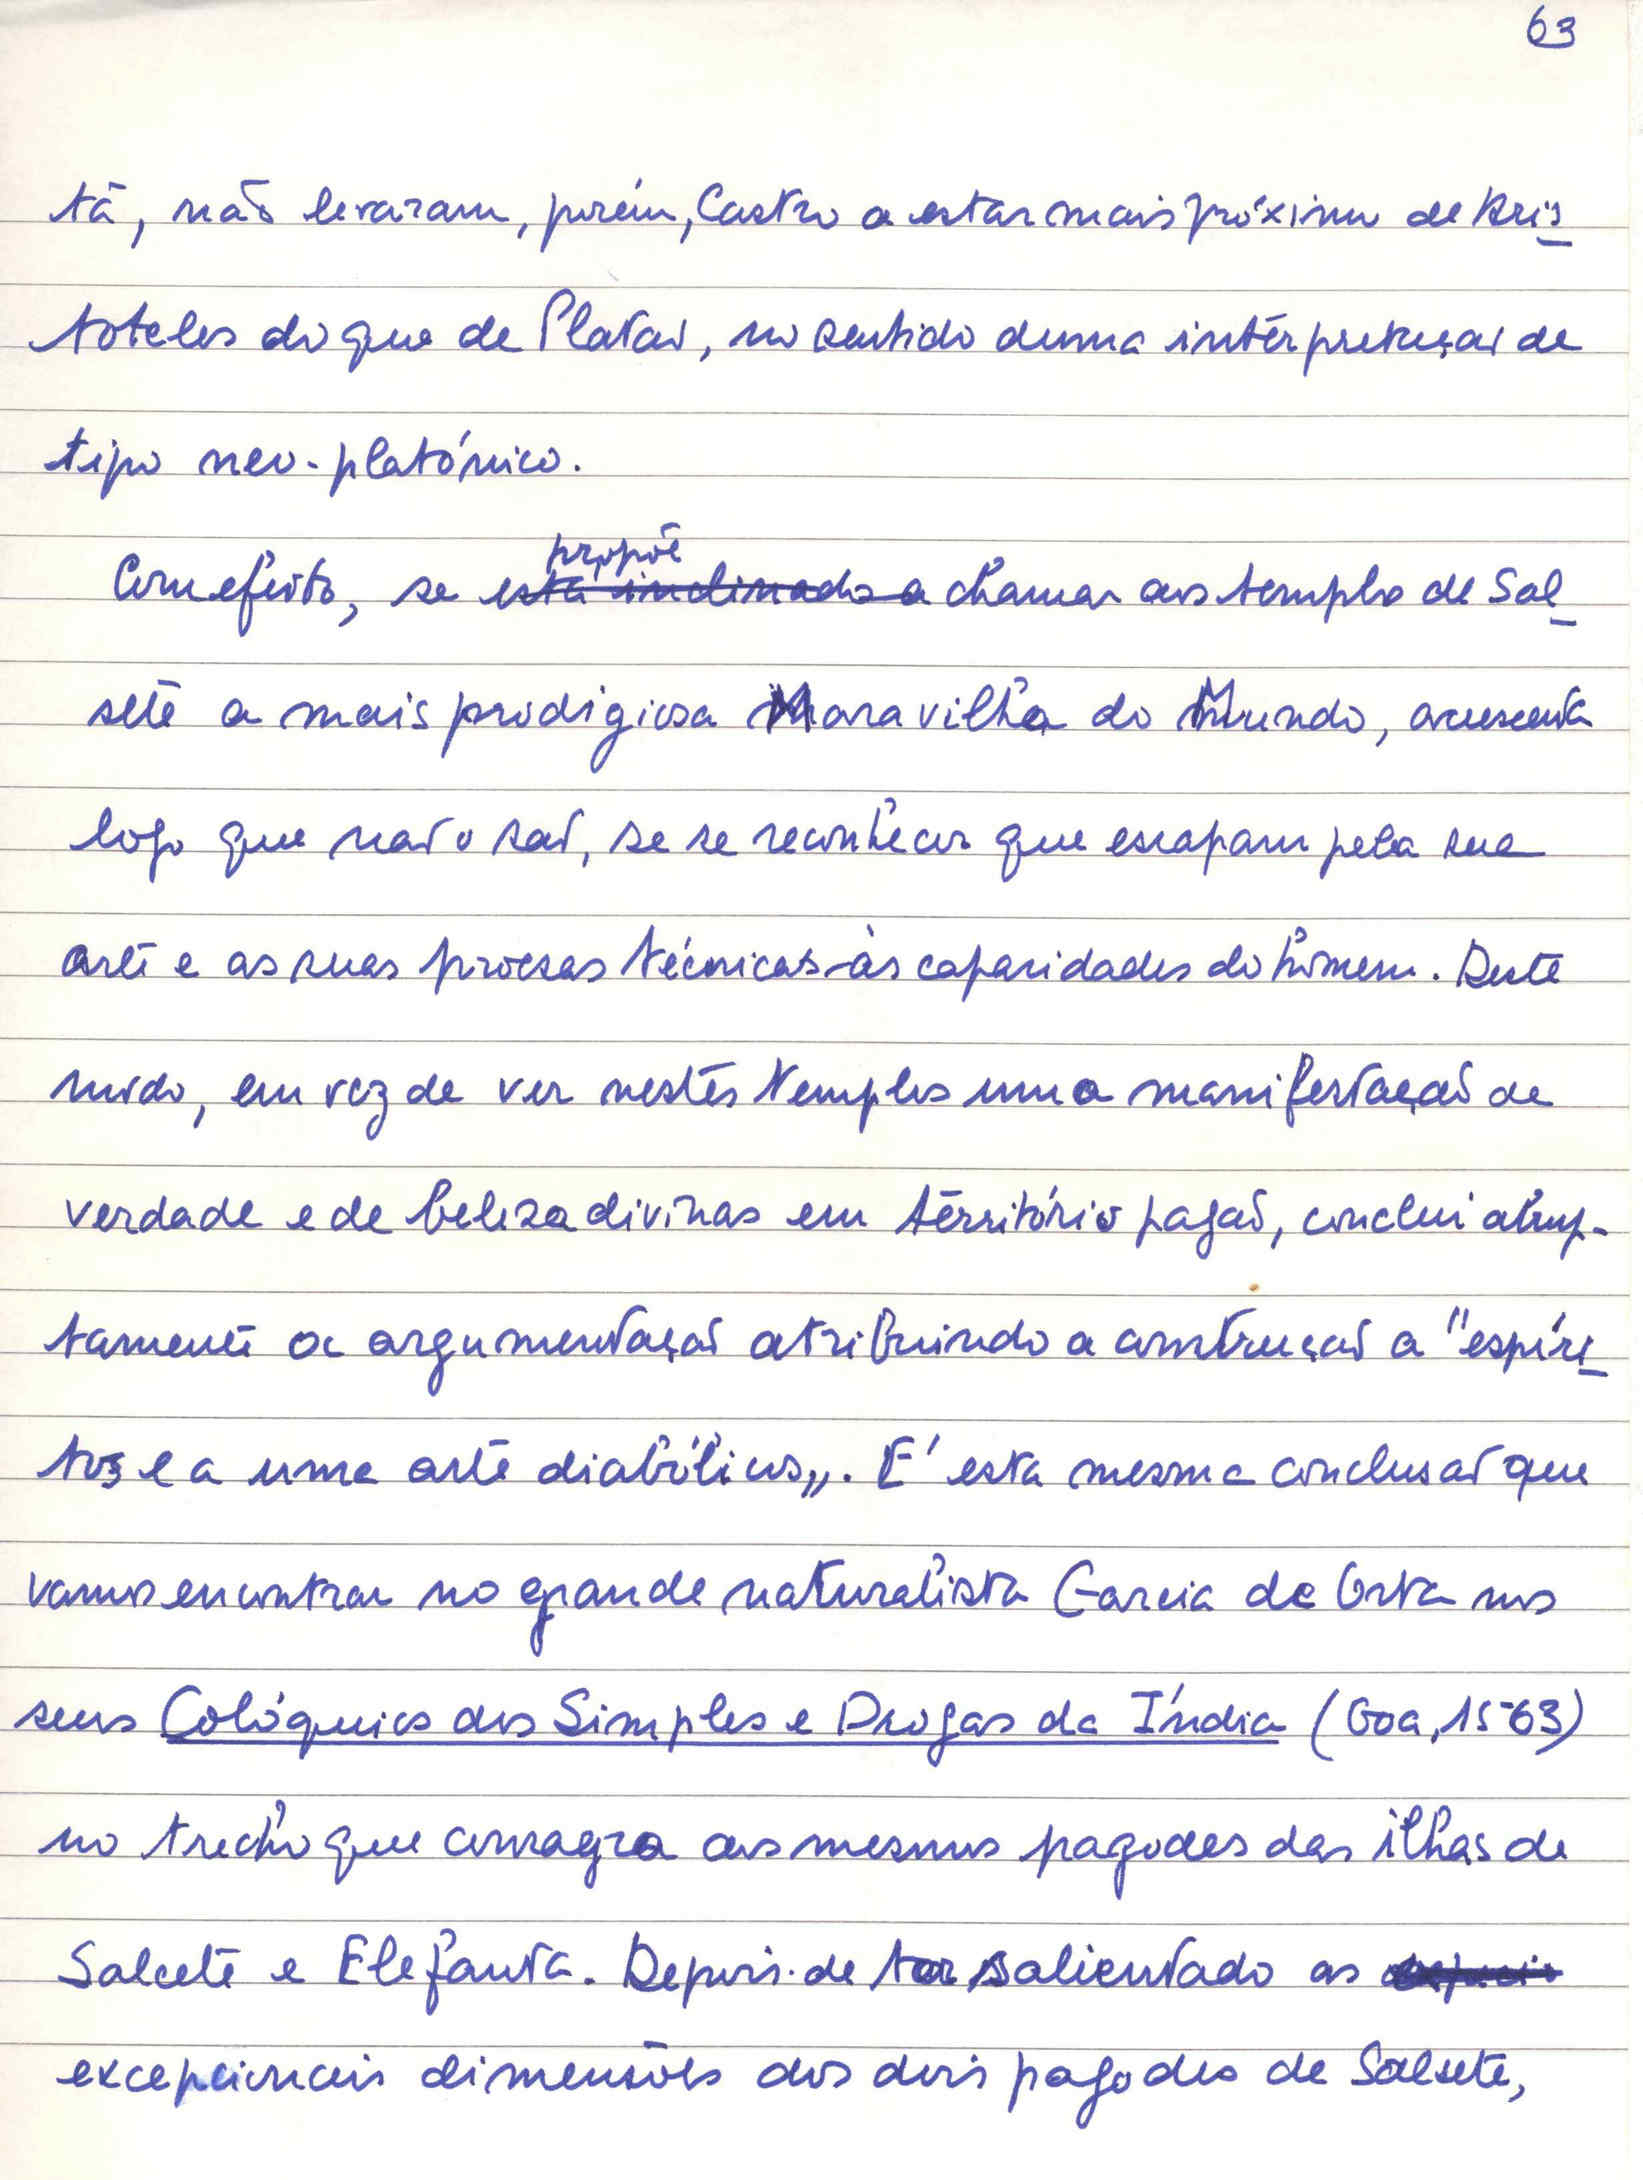 63
tã, não levaram, porém, Castro a estar mais próximo de Aris
toteles do que de Platão, no sentido duma interpretação de
tipo neo-platónico.
propõe
Com efeito, se está inclinado a chamar aos templo de Sal
sete a mais prodigiosa Maravilha do Mundo, acrescenta
logo que não o são, se se reconhecer que escapam pela sua
arte e as suas proezas técnicas às capacidades do homem. Deste
modo, em vez de ver nestes templos uma manifestação de
verdade e de beleza divinas em território pagão, conclui abrup-
tamente a argumentação atribuindo a construção a "espíri
tos e a uma arte diabólicos". É esta mesma conclusão que
vamos encontrar no grande naturalista Garcia de Orta nos
seus Colóquios dos Simples e Drogas da Índia (Goa, 1563)
no trecho que consagra aos mesmos pagodes das ilhas de
Salcete e Elefanta. Depois de ter salientado as
excepcionais dimensões dos dois pagodes de Salsete,